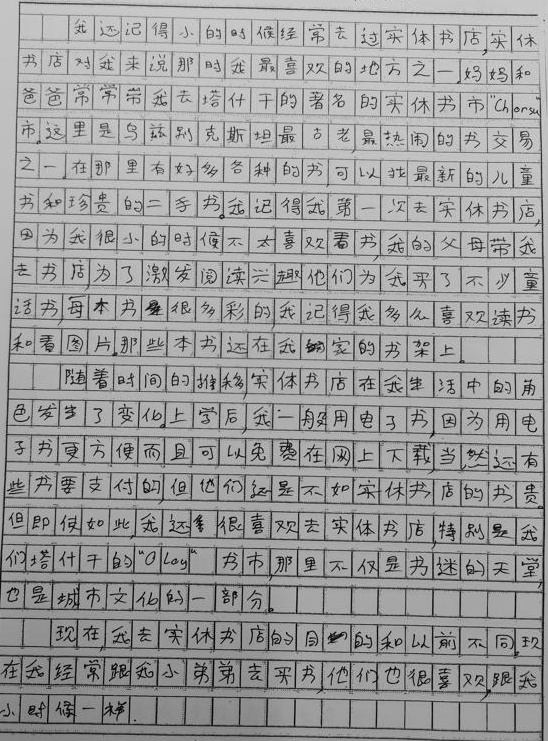 我还记得小的时候经常去过实体书店,实体
书店对我来说那时我最喜欢的地方之一.妈妈和
爸爸常常带我去塔什干的著名的实体书市"Chorsu"
市.这里是乌兹别克斯坦最古老,最热闹的书交易
之一.在那里有好多各种的书,可以找最新的儿童
书和珍贵的二手书.我记得我第一次去实体书店,
因为我很小的时候不太喜欢看书,我的父母带我
去书店,为了激发阅读兴趣他们为我买了不少童
话书,每本书是很多彩的,我记得我多么喜欢读书
和看图片.那些本书还在我家的书架上.
随着时间的推移,实体书店在我生活中的角
色发生了变化.上学后,我一般用电子书,因为用电
子书更方便而且可以免费在网上下载.当然还有
些书要支付的,但他们还是不如实体书店的书贵.
但即使如此,我还是很喜欢去实体书店,特别是我
们塔什干的"Oloy"书市,那里不仅是书迷的天堂,
也是城市文化的一部分。
现在,我去实体书店的目的和以前不同.现
在我经常跟我小弟弟去买书,他们也很喜欢,跟我
小时候一样.